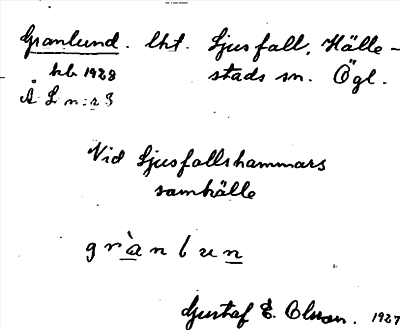 Granlund. lht. Ljusfall, Hälle-
hb 1928 stads sn. Ögl.
Å L n:r 3
Vid Ljusfallshammars
samhälle
gràn l u n
Gustaf E. Olsson. 1927